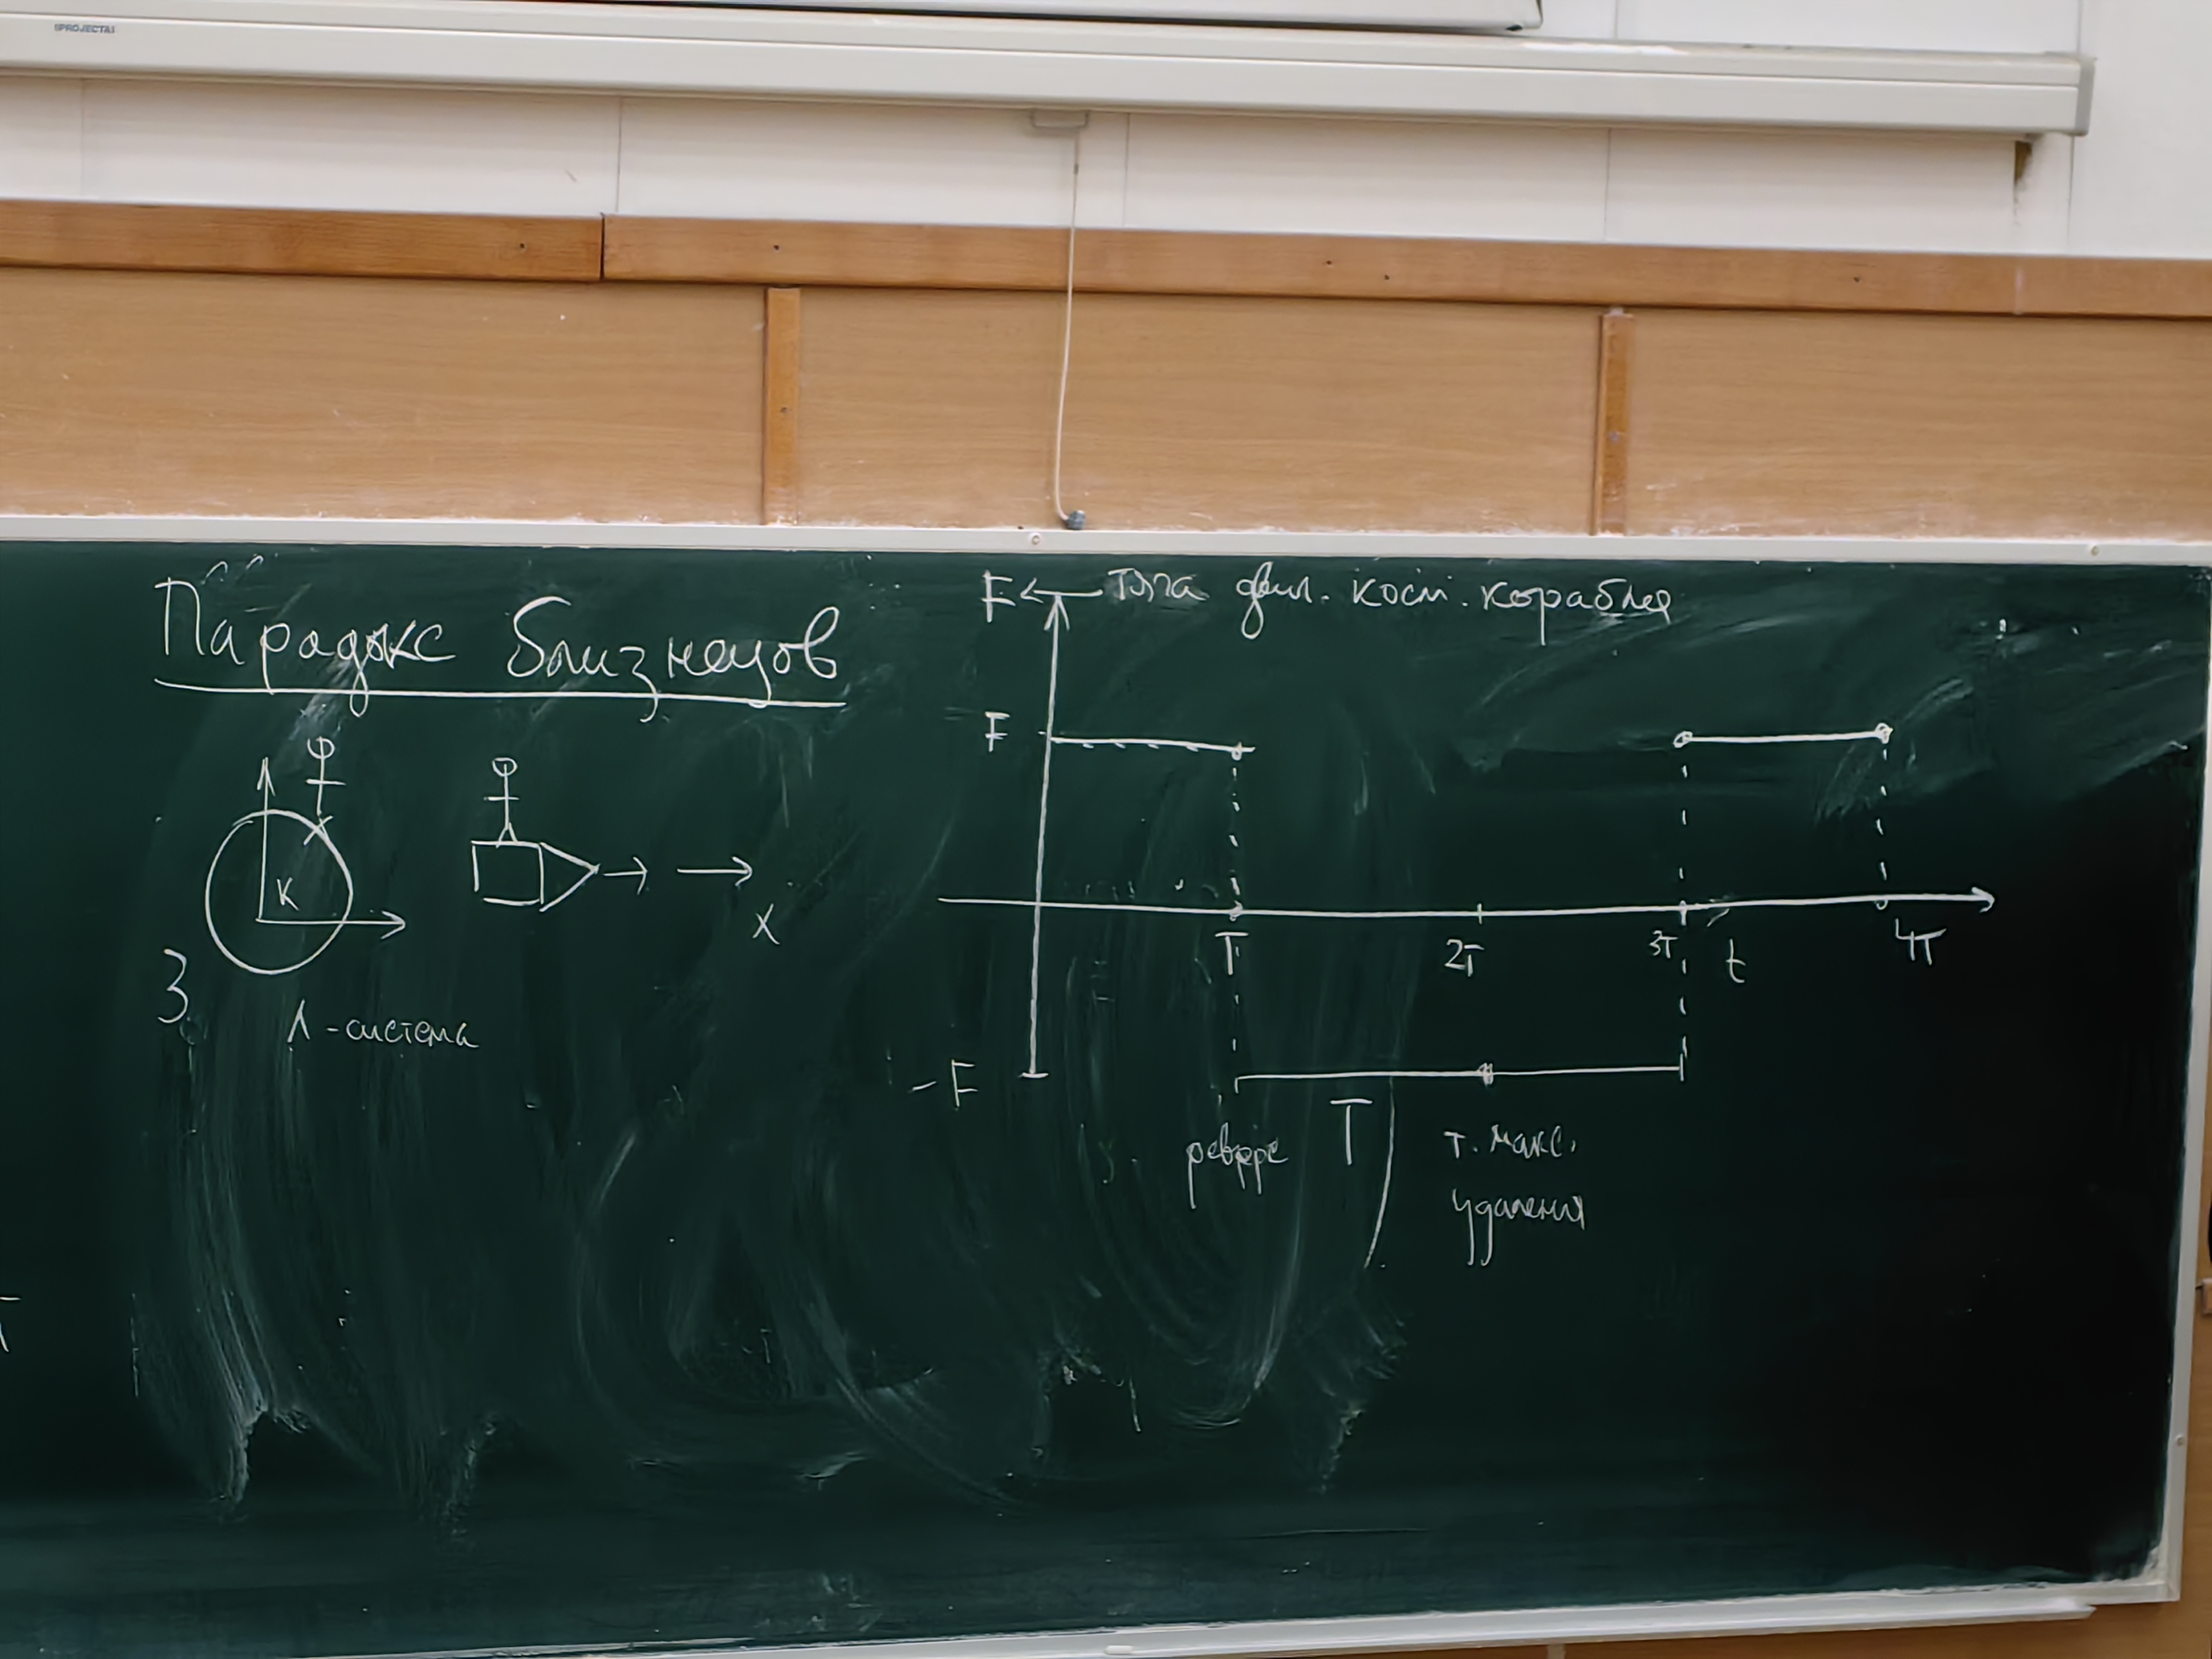 PROJECTA
Парадокс близнецов
K
X
З
Л-система
F ← тяга двиг. косм. корабля
F
T 2T 3T t 4T
-F
реверс T т. макс.
удаления